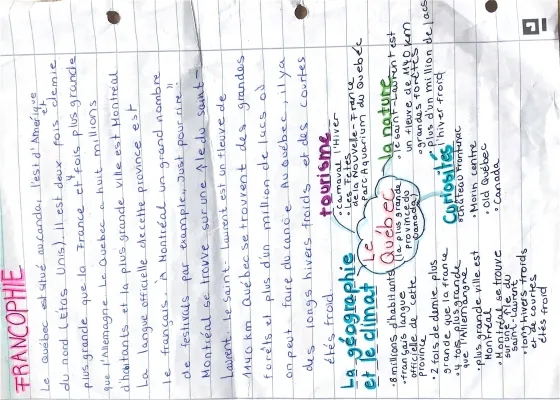 FRANCOPHIE
Le québec est situé au canada, l'est d'Amérique
du nord (Etas Unis). Il est deux fois demie et
plus grande que la France et fois plus grande
que l'Allemagne. Le Quebec a huit millions
d'habitants et la plus grande ville est Montréal
La langue officielle de cette province est
le français. À Montréal un grand nombre
de festivals par example „Just pour rire"
Montréal se trouve sur une île du saint-
Laurent. le saint-Laurent est un fleuve de
1140 km Québec se trouvent des grandes
forêts et plus d'un million de lacs où
on peut faire du canoe Au québec, il y a
des longs hivers froids et des courtes
étés froid
La géographie
et le climat
• 8 millions d'habitants
• français langue
officielle de cette
province
• 2 fois de demie plus
grande que la france
• 4 fois plus grande
que l'Allemangne
• plus grande ville est
Montréal
• Montréal se trouve
sur une île du
saint-Laurent
• long hivers froids
et de courtes
étés froid
tourisme
• Carnaval d'Hiver
• Les Fêtes
de la Nouvelle-France
• Parc Aquarium du Quebéc
Le
Québec
(la plus grande
province du
Canada)
la nature
• le saint-Laurent est
un fleuve de 1140 km
• grandes forêts
• plus d'un million de lacs
• l'hiver froid
Curiosités
• Château Frontenac
• Morin centre
• Old Québec
• Canada